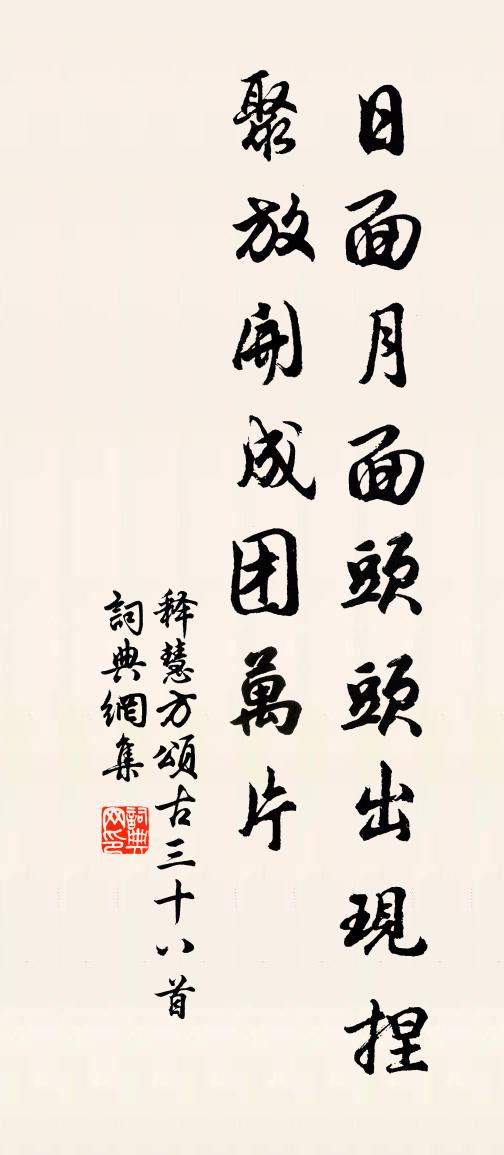 日面月面頭頭出現捏
聚放開成团萬片
释慧方頌古三十八首
詞典網集
詞典网印